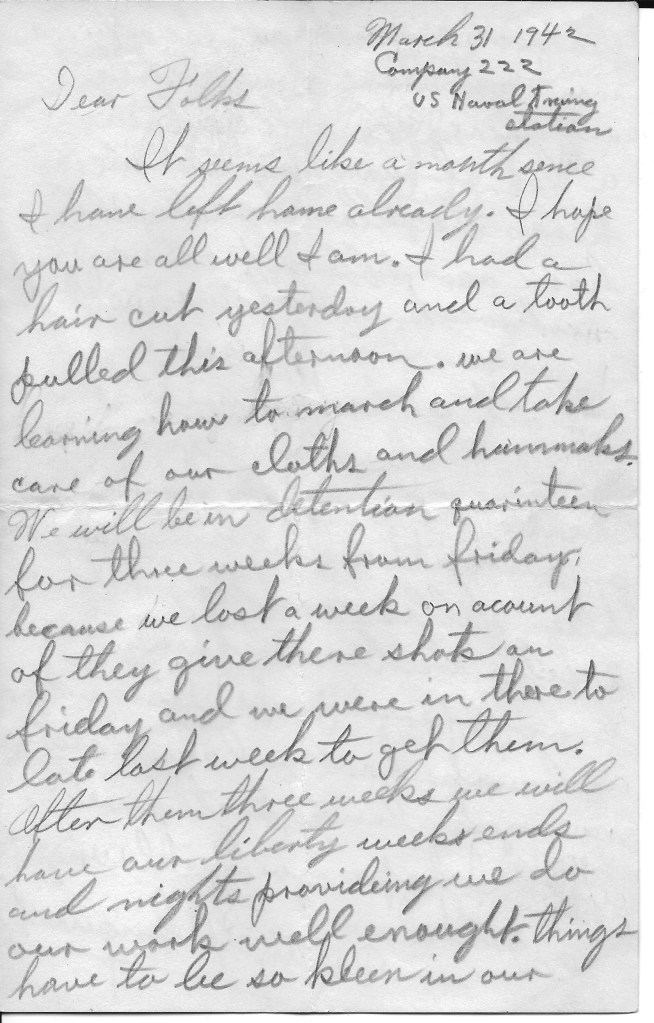 March 31 1942
Company 222
US Naval Traing
station
Dear Folks
It seems like a month sence
I have left home already. I hope
you are all well I am. I had a
hair cut yesterday and a tooth
pulled this afternoon. we are
learning how to march and take
care of our cloths and hammaks.
We will be in detention quarinteen
for three weeks from friday,
because we lost a week on acount
of they give there shots on
friday and we were in there to
late last week to get them.
After them three weeks we will
have our liberty weeks ends
and nights provideing we do
our work well enought. things
have to be so kleen in our